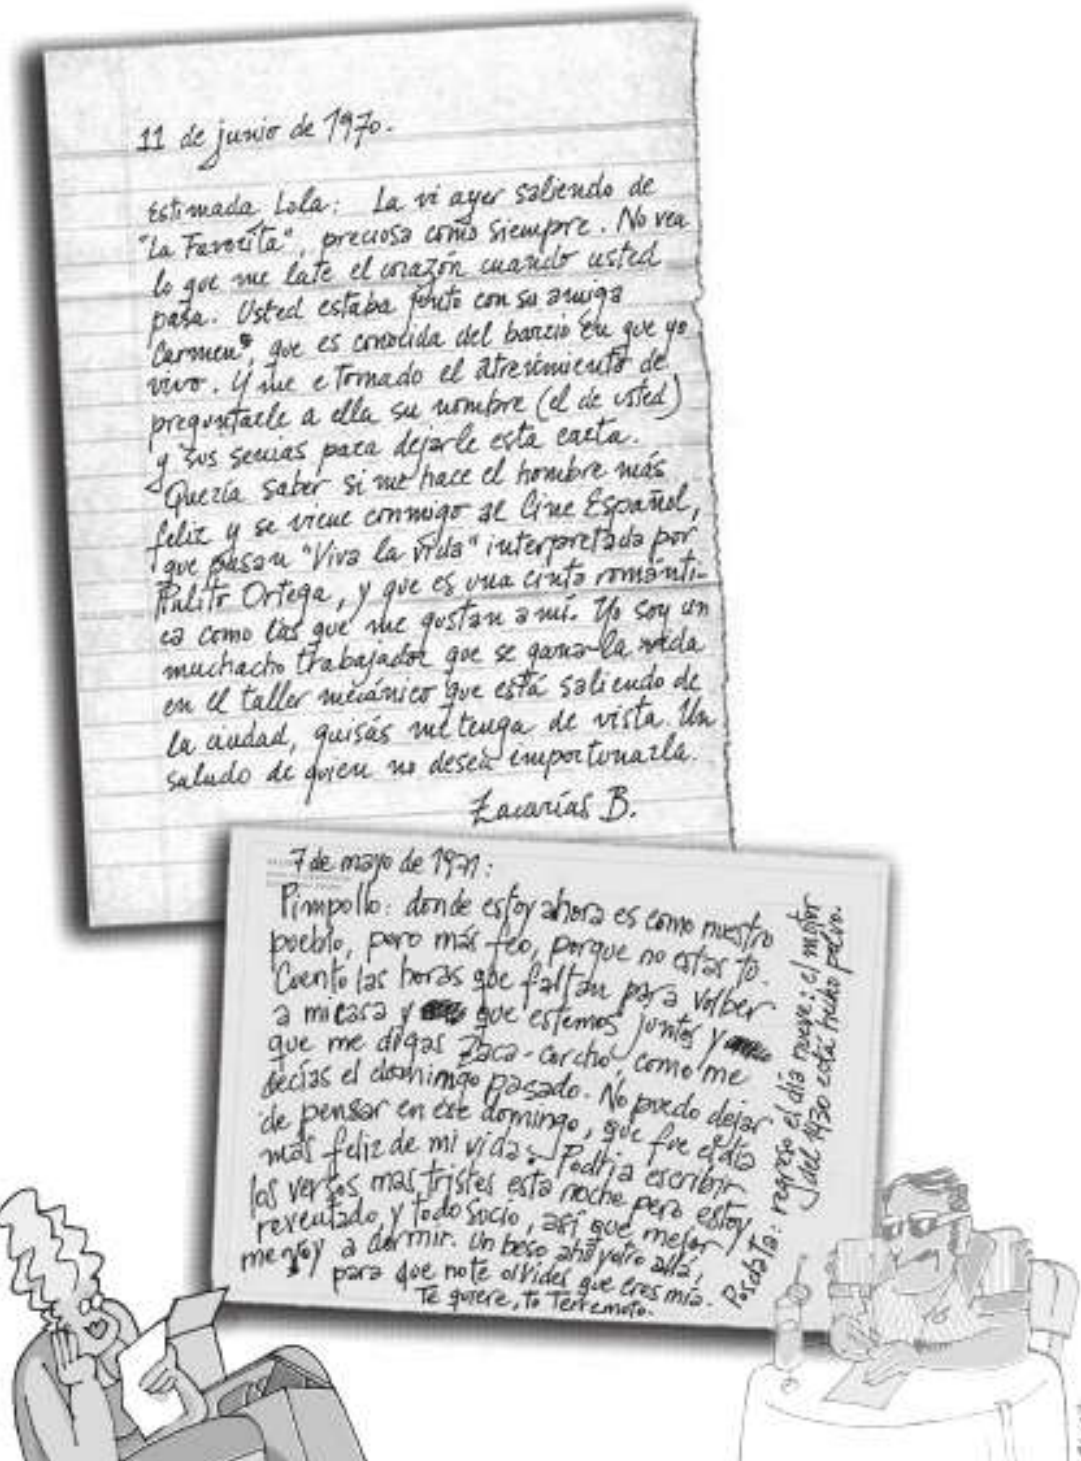 11 de junio de 1970.
Estimada Lola: La vi ayer saliendo de
"La Favorita", preciosa como siempre. No vea
lo que me late el corazón cuando usted
pasa. Usted estaba junto con su amiga
Carmen, que es conocida del barrio en que yo
vivo. Y me e tomado el atrevimiento de
preguntarle a ella su nombre (el de usted)
y sus senias para dejarle esta carta.
Quería saber si me hace el hombre más
feliz y se viene conmigo al Cine Español,
que pasan "Viva la vida" interpretada por
Palito Ortega, y que es una cinta románti-
ca como las que me gustan a mí. Yo soy un
muchacho trabajador que se gana la vida
en el taller mecánico que está saliendo de
la ciudad, quisás me tenga de vista. Un
saludo de quien no desea importunarla.
Zacarías B.
7 de mayo de 1971:
Pimpollo: donde estoy ahora es como nuestro
pueblo, pero más feo, porque no estas tú.
Cuento las horas que faltan para volber
a mi casa y que estemos juntos y
que me digas Zaca-corcho, como me
decías el domingo pasado. No puedo dejar
de pensar en ese domingo, que fue el día
más feliz de mi vida. Podría escribir
los versos mas tristes esta noche pero estoy
reventado, y todo sucio, así que mejor
me voy a dormir. Un beso ahí y otro allá,
para que no te olvides que eres mía.
Te quiere, tu Terremoto.
Posdata: regreso el día nueve: el motor
del 1430 está hecho polvo.